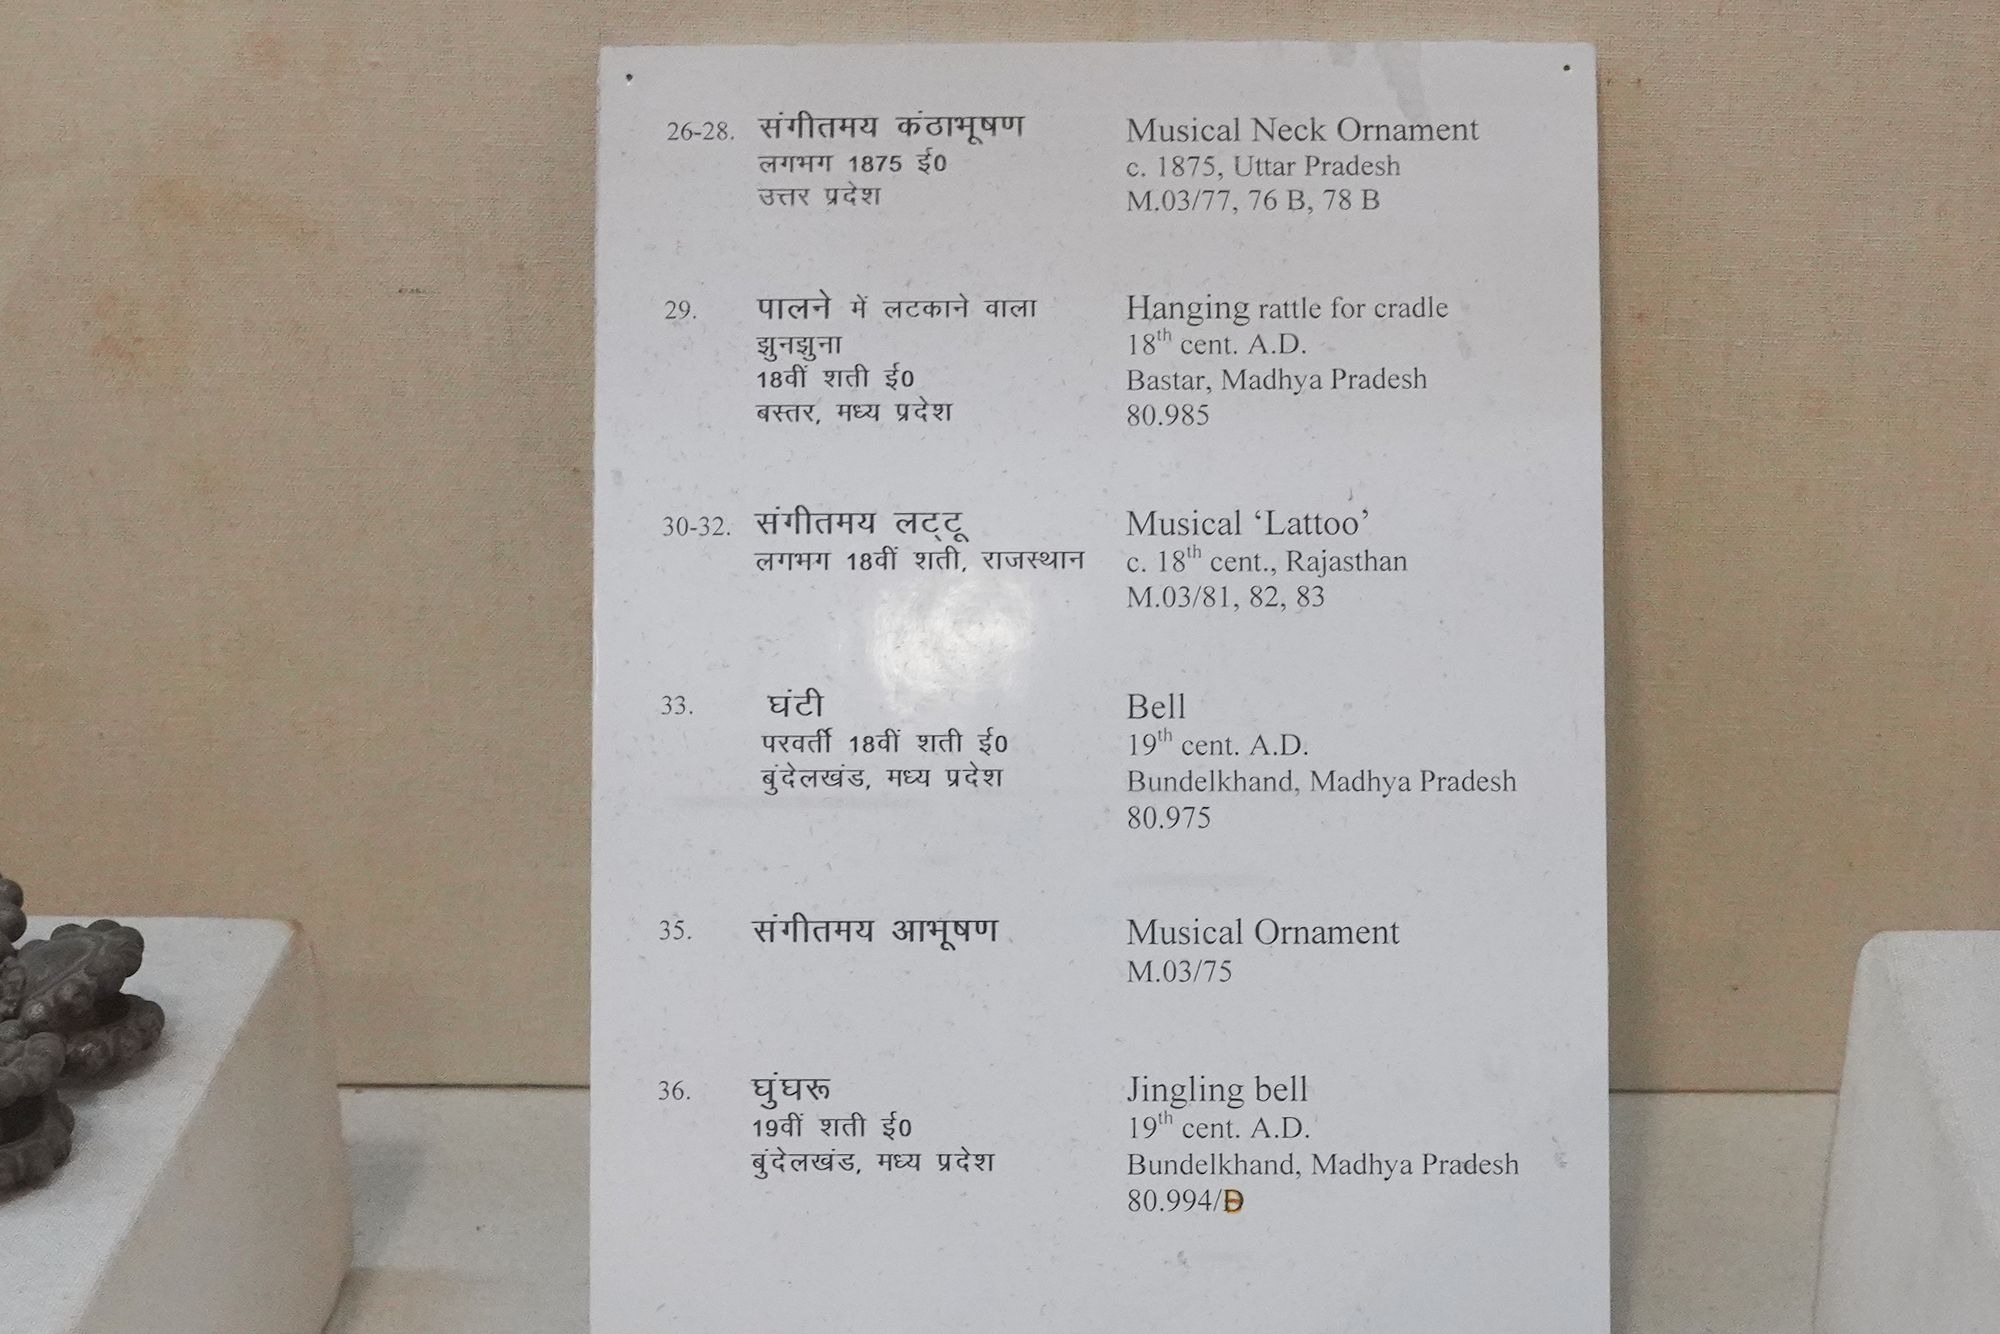 26-28. संगीतमय कंठाभूषण Musical Neck Ornament
लगभग 1875 ई0 c. 1875, Uttar Pradesh
उत्तर प्रदेश M.03/77, 76 B, 78 B
29. पालने में लटकाने वाला Hanging rattle for cradle
झुनझुना 18th cent. A.D.
18वीं शती ई0 Bastar, Madhya Pradesh
बस्तर, मध्य प्रदेश 80.985
30-32. संगीतमय लट्टू Musical ‘Lattoo’
लगभग 18वीं शती, राजस्थान c. 18th cent., Rajasthan
M.03/81, 82, 83
33. घंटी Bell
परवर्ती 18वीं शती ई0 19th cent. A.D.
बुंदेलखंड, मध्य प्रदेश Bundelkhand, Madhya Pradesh
80.975
35. संगीतमय आभूषण Musical Ornament
M.03/75
36. घुंघरू Jingling bell
19वीं शती ई0 19th cent. A.D.
बुंदेलखंड, मध्य प्रदेश Bundelkhand, Madhya Pradesh
80.994/